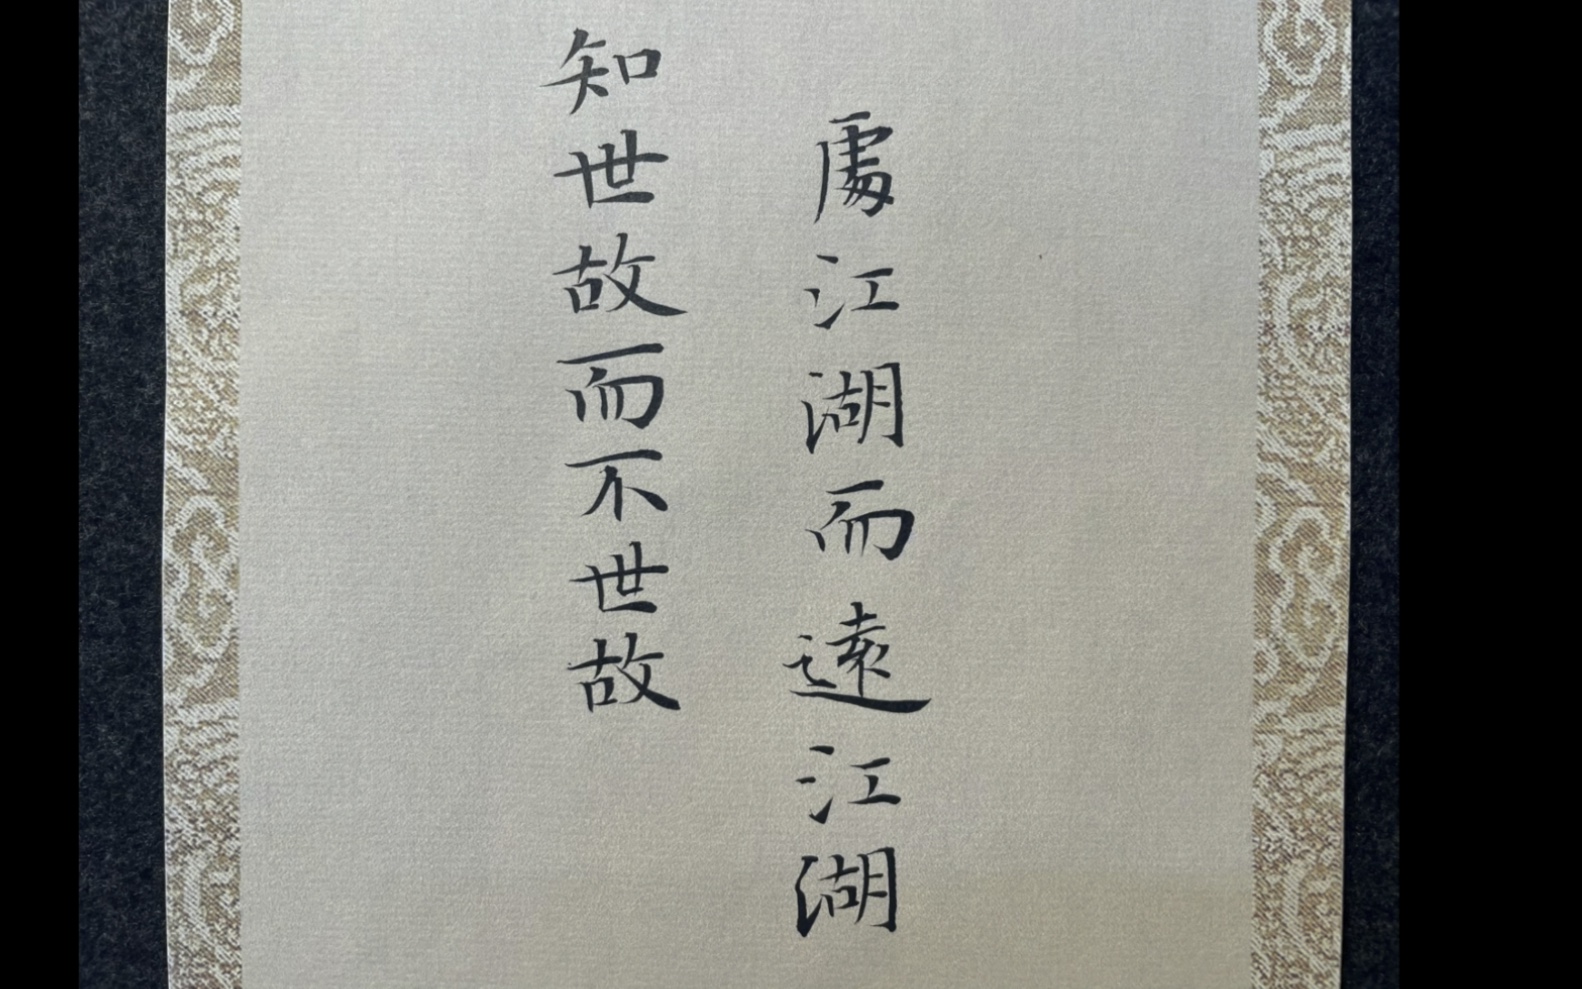 處江湖而遠江湖
知世故而不世故